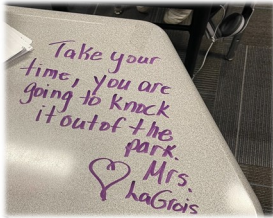 Take your
time, you are
going to knock
it out of the
park.
Mrs.
LaGrois